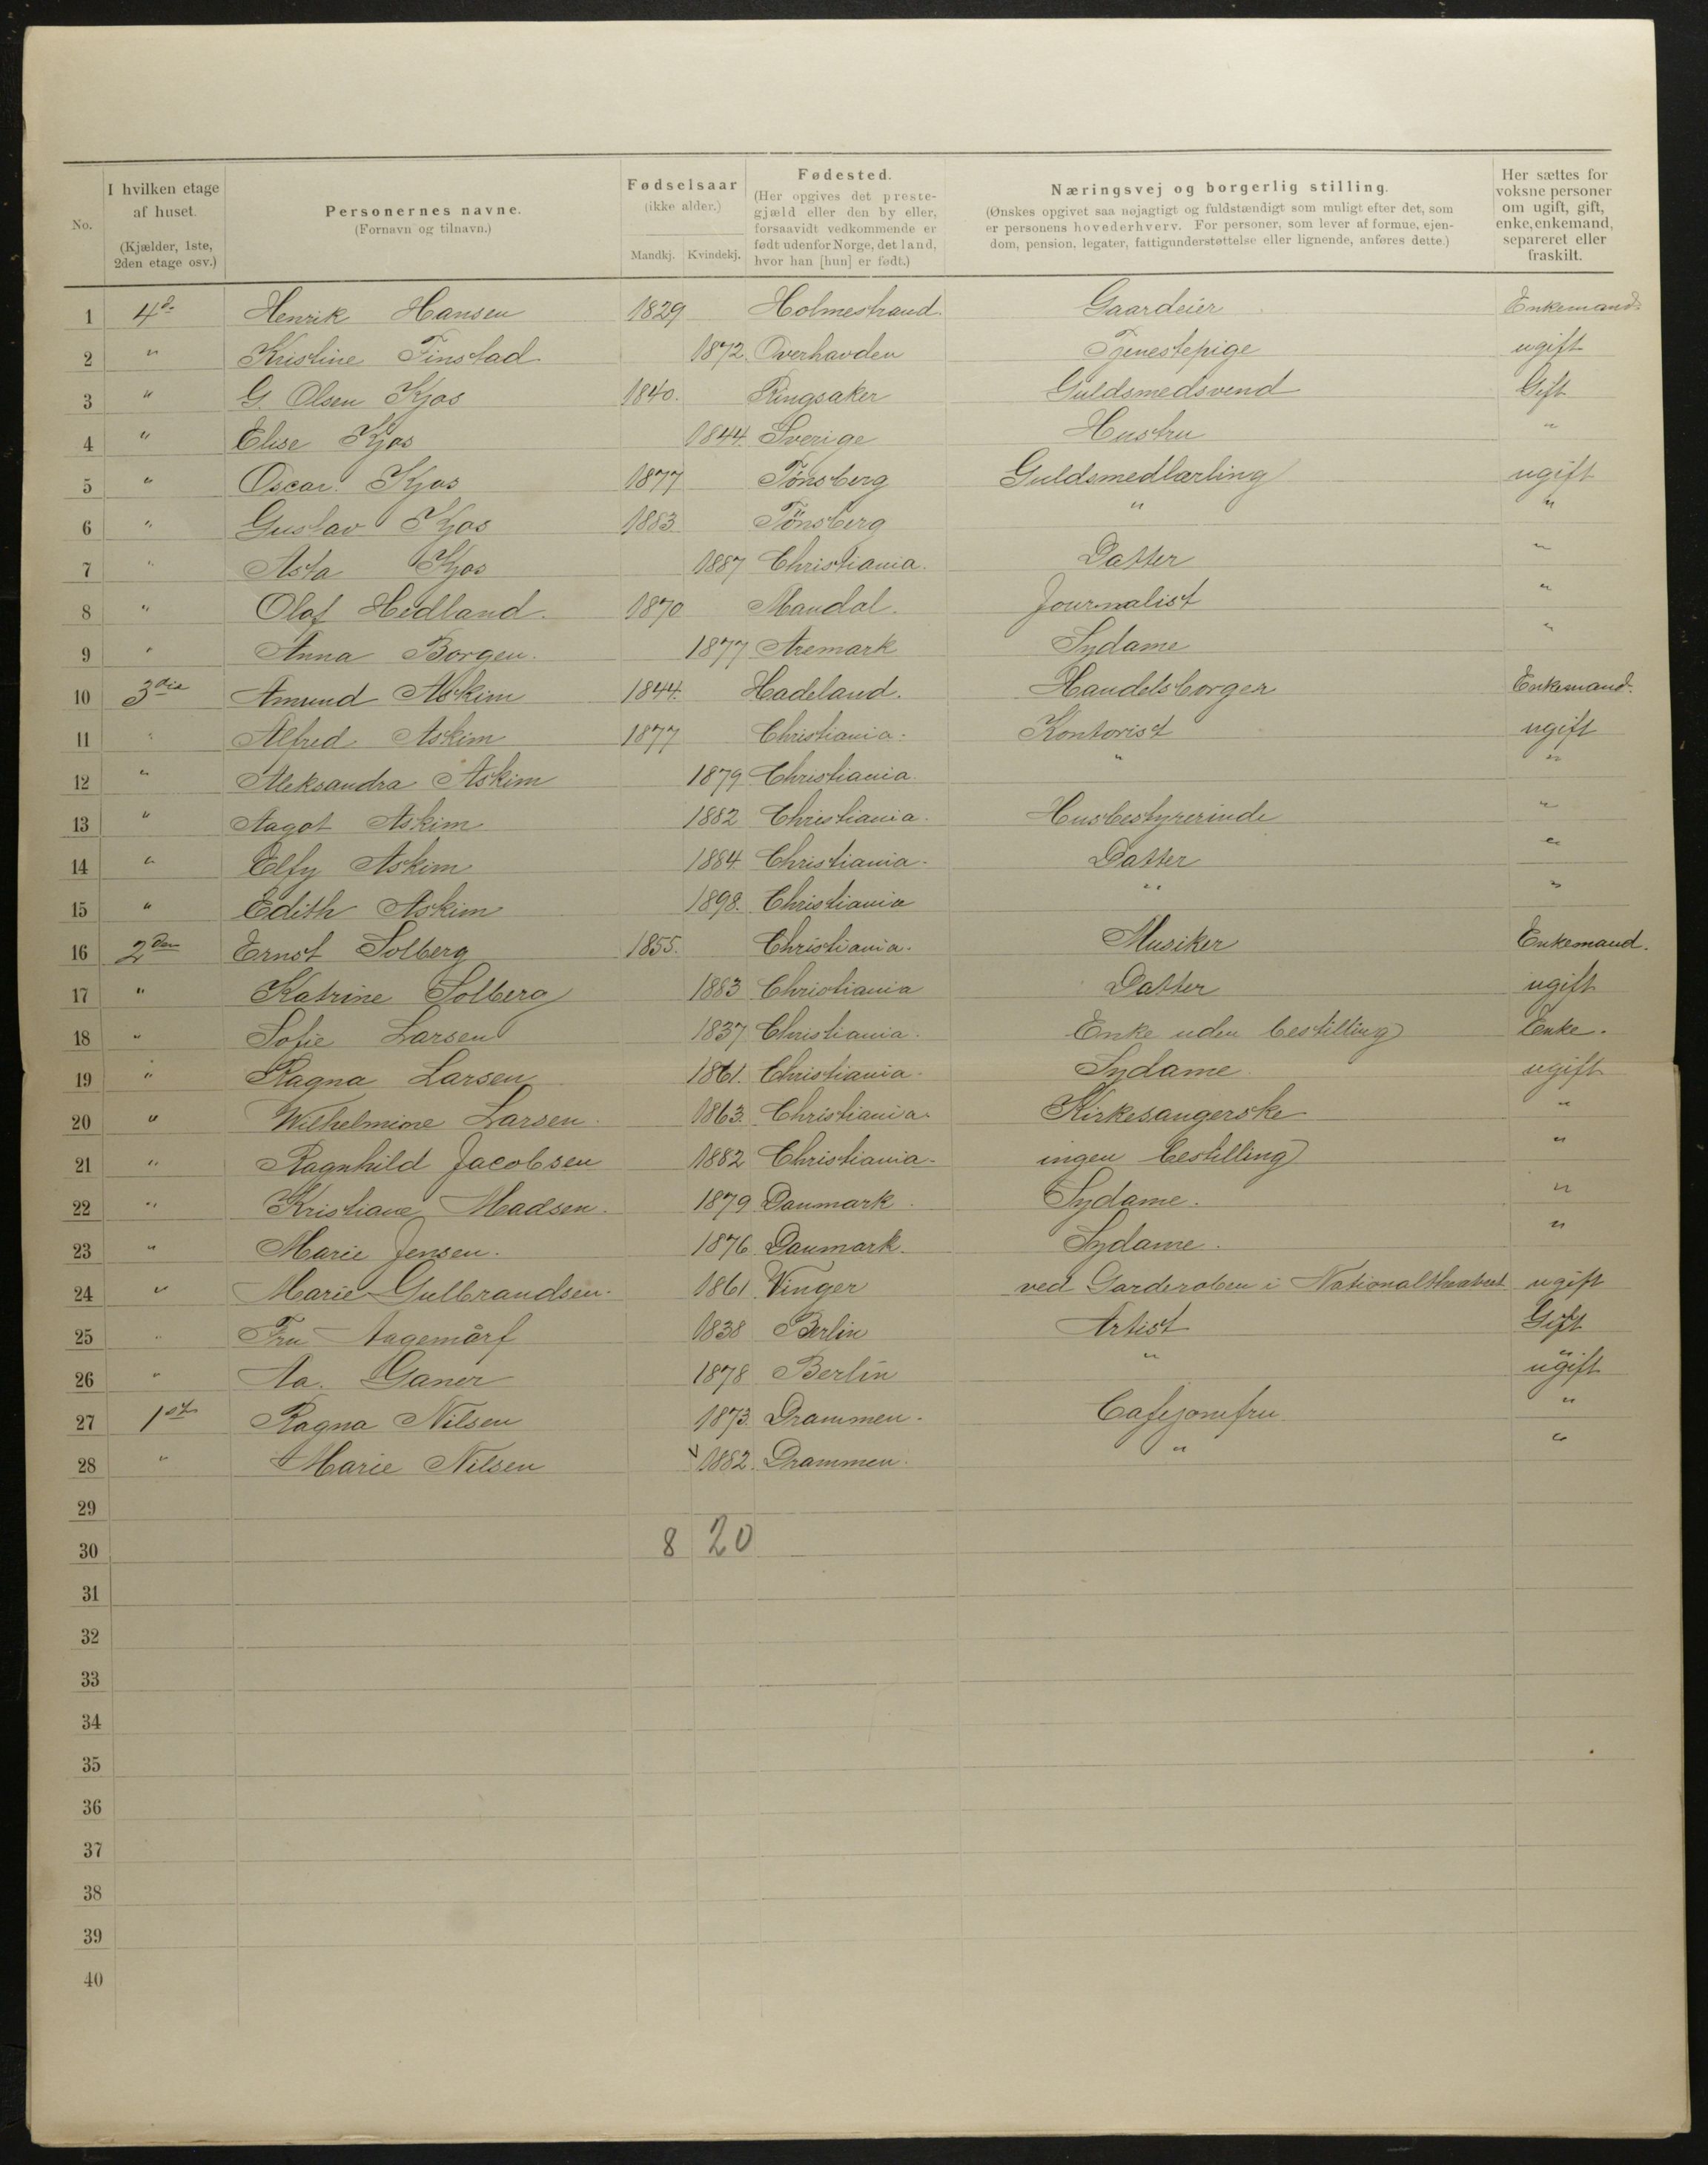 No. | I hvilken etage af huset. (Kjælder, 1ste, 2den etage osv.) | Personernes navne. (Fornavn og tilnavn.) | Fødselsaar (ikke alder.) Mandkj. | Kvindekj. | Fødested. (Her opgives det prestegjæld eller den by eller, forsaavidt vedkommende er født udenfor Norge, det land, hvor han [hun] er født.) | Næringsvej og borgerlig stilling. (Ønskes opgivet saa nøjagtigt og fuldstændigt som muligt efter det, som er personens hovederhverv. For personer, som lever af formue, ejendom, pension, legater, fattigunderstøttelse eller lignende, anføres dette.) | Her sættes for voksne personer om ugift, gift, enke, enkemand, separeret eller fraskilt.
1 4de Henrik Hansen 1829 Holmestrand. Gaardeier Enkemand.
2 " Kristine Finstad 1872. Overhavden Tjenestepige ugift
3 " G. Olsen Kjos 1840. Ringsaker Guldsmedsvend Gift
4 " Elise Kjos 1844. Sverige Hustru "
5 " Oscar. Kjos 1877 Tönsberg Guldsmedlærling ugift
6 " Gustav Kjos 1883 Tönsberg " "
7 " Asta Kjos 1887 Christiania. Datter "
8 " Olaf Hedland. 1870 Mandal. Journalist "
9 " Anna Borgen. 1877 Aremark Sydame "
10 3die Amund Askim 1844. Hadeland. Handelsborger Enkemand.
11 " Alfred Askim 1877 Christiania. Kontorist ugift
12 " Aleksandra Askim 1879 Christiania. " "
13 " Aagot Askim 1882 Christiania. Husbestyrerinde "
14 " Elfy Askim 1884. Christiania. Datter "
15 " Edith Askim 1898. Christiania " "
16 2den Ernst Solberg 1855. Christiania. Musiker Enkemand.
17 " Katrine Solberg 1883 Christiania Datter ugift
18 " Sofie Larsen 1837 Christiania. Enke uden bestilling Enke.
19 " Ragna Larsen 1861. Christiania. Sydame ugift
20 " Wilhelmine Larsen. 1863. Christiania. Kirkesangerske "
21 " Ragnhild Jacobsen 1882 Christiania. ingen bestilling "
22 " Kristiane Madsen. 1879 Danmark. Sydame. "
23 " Marie Jensen. 1876 Danmark. Sydame. "
24 " Marie Gulbrandsen. 1861 Vinger ved Garderoben i Nationaltheatret ugift
25 " Fru 1838 Berlin Artist Gift
26 " Aa. Ganer 1878 Berlin " ugift
27 1ste Ragna Nilsen 1873. Drammen. Cafejomfru "
28 " Marie Nilsen 1882. Drammen. " "
29
30 8 20
31
32
33
34
35
36
37
38
39
40